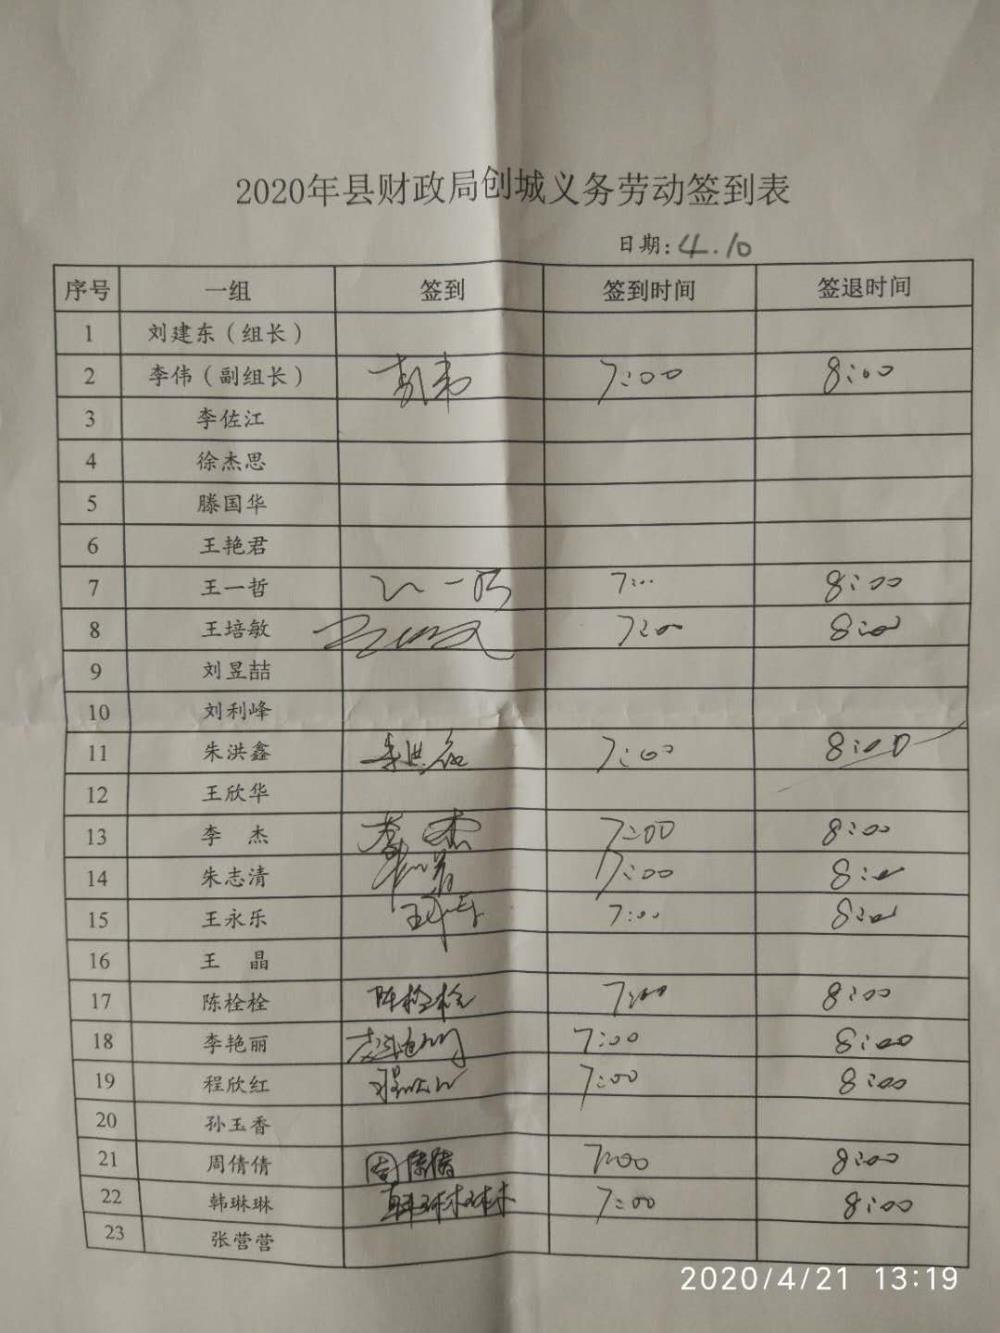 2020年县财政局创城义务劳动签到表
日期:4.10
序号 一组 签到 签到时间 签退时间
1 刘建东（组长）
2 李伟（副组长） 李伟 7:00 8:00
3 李佐江
4 徐杰思
5 滕国华
6 王艳君
7 王一哲 王一哲 7:00 8:00
8 王培敏 7:00 8:00
9 刘昱喆
10 刘利峰
11 朱洪鑫 朱洪鑫 7:00 8:00
12 王欣华
13 李 杰 李杰 7:00 8:00
14 朱志清 7:00 8:00
15 王永乐 王永乐 7:00 8:00
16 王 晶
17 陈栓栓 陈栓栓 7:00 8:00
18 李艳丽 李艳丽 7:00 8:00
19 程欣红 程欣红 7:00 8:00
20 孙玉香
21 周倩倩 周倩倩 7:00 8:00
22 韩琳琳 韩琳琳 7:00 8:00
23 张营营
2020/4/21 13:19